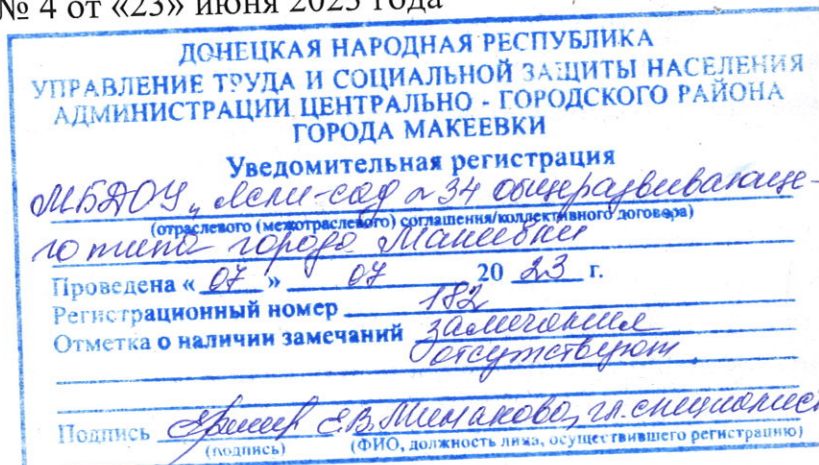 № 4 от «23» июня 2023 года
ДОНЕЦКАЯ НАРОДНАЯ РЕСПУБЛИКА
УПРАВЛЕНИЕ ТРУДА И СОЦИАЛЬНОЙ ЗАЩИТЫ НАСЕЛЕНИЯ
АДМИНИСТРАЦИИ ЦЕНТРАЛЬНО - ГОРОДСКОГО РАЙОНА
ГОРОДА МАКЕЕВКИ
Уведомительная регистрация
МБДОУ „ Ясли-сад № 34 общеразвивающе-
(отраслевого (межотраслевого) соглашения/коллективного договора)
го типа города Макеевки
Проведена « 07 » 07 20 23 г.
Регистрационный номер 182
Отметка о наличии замечаний замечания
отсутствуют
Подпись Е.В. Минакова, гл. специалист
(подпись) (ФИО, должность лица, осуществившего регистрацию)